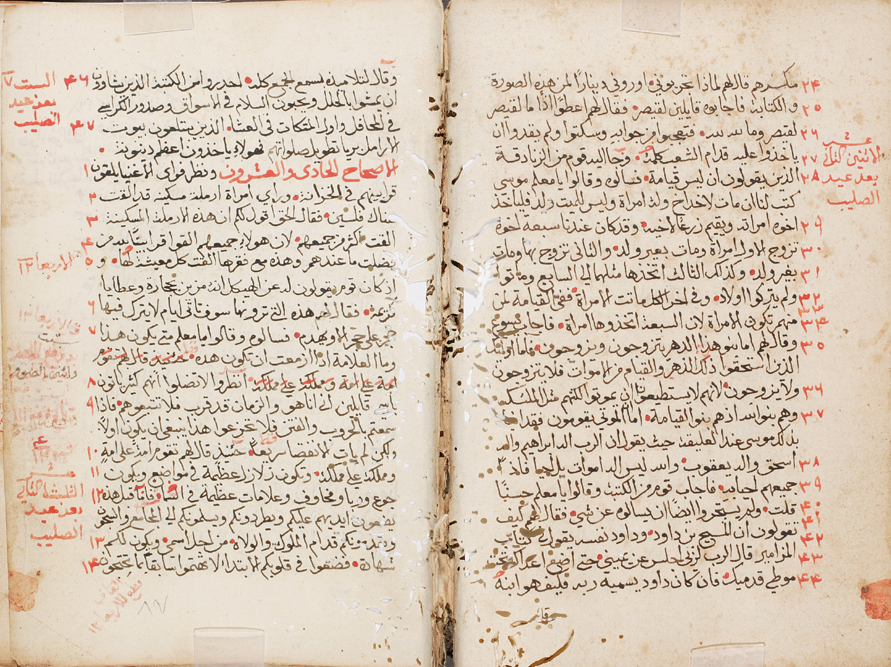 مكرهم قال لهم لماذا تجربوني اروني دينارًا لمن هذه الصورة ٢٤
والكتابة فاجابوه قايلين لقيصر فقال لهم اعطوا اذًا ما لقيصر ٢٥
لقيصر وما لله لله فتعجبوا من جوابه وسكتوا ولم يقدروا ان ٢٦
ياخذوا عليه قدام الشعب كلمة وجا اليه قوم من الزنادقة ٢٧
الذين يقولون ان ليس قيامة فسالوه وقالوا يا معلم موسى ٢٨
كتب لنا ان مات لاخ اخ وله امراة وليس للميت ولد فلياخذ
اخوه امراته ويقيم زرعًا لاخيه وقد كان عندنا سبعة اخوة ٢٩
تزوج الاول امراة ومات بغير ولد والثاني تزوج بها ومات ٣٠
بغير ولد وكذلك الثالث اتخذها مثلهما الى السابع وماتوا ٣١
ولم يتركوا اولاد وفي اخر الكل ماتت الامراة ففي القيامة لمن ٣٢ ٣٣
منهم تكون الامراة لان السبعة اتخذوها امراة فاجاب يسوع ٣٤
وقال لهم اما بنو هذا الدهر يتزوجون ويزوجون فاما اوليك ٣٥
الذين استحقوا ذلك الدهر والقيامة من الاموات فلا يتزوجون
ولا يزوجون لانهم لا يستطيعون ان يموتوا لكنهم مثل الملايكة ٣٦
وهم بنو الله اذ هم بنو القيامة اما الموتى يقومون فقد انبا ٣٧
بذلك موسى عند العليقة حيث يقول ان الرب اله ابراهيم واله
اسحق واله يعقوب والله ليس اله اموات بل احيا فاذًا ٣٨
جميعهم احيا به فاجاب قوم من الكتبة وقالوا يا معلم حسنًا ٣٩
قلت ولم يستجروا ايضا ان يسالوه عن شي فقال لهم كيف ٤٠ ٤١
تقولون ان المسيح بن داود وداود نفسه يقول في كتاب ٤٢
المزامير قال الرب لربي اجلس عن يميني حتى اضع اعداك تحت ٤٣
موطي قدميك فان كان داود يسميه ربه فكيف هو ابنه ٤٤
الاثنين الثاني
بعد عيد
الصليب
وقال لتلاميذه يسمع الجمع كله احذروا من الكتبة الذين يشاوون ٤٦
ان يمشوا بالحلل ويحبون السلام في الاسواق وصدور الكراسي
في المحافل واول المتكات في العشا الذين يبتلعون بيوت ٤٧
الارامل بريا تطويل صلواتهم فهولاء ياخذون اعظم دينونة
الاصحاح الحادي والعشرون ونظر فراى الاغنيا يلقون ١
قرابينهم في الخزانة وراى امراة ارملة مسكينة قد القت ٢
هناك فلسين فقال الحق اقول لكم ان هذه الارملة المسكينة ٣
القت اكثر من جميعهم لان هولاء جميعهم القوا قرابين لله من ٤
فضلت ما عندهم وهذه مع فقرها القت كل معيشة لها و ٥
اذ كان قوم يقولون له عن الهيكل انه مزين بحجارة وعطايا
كريمة فقال لهم هذه التي ترونها سوف تاتي ايام لا يترك فيها ٦
حجر على حجر الا ويهدم فسالوه وقالوا يا معلم متى يكون هذا ٧
وما العلامة اذا ازمعت ان تكون هذه
انظروا لا تضلوا انهم كثير ياتون ٨
باسمي قايلين اني انا هو والزمان قد قرب فلا تتبعوهم فاذا ٩
سمعتم بالحروب والفتن فلا تجزعوا هذا ينبغي ان يكون اولًا
ولكن لم يات الانقضا سريعًا حينيذ قال لهم تقوم امة على امة ١٠
ومملكة على مملكة وتكون زلازل عظيمة في مواضع ويكون ١١
جوع ووبا ومخاوف وعلامات عظيمة في السما وقبل هذه ١٢
يضعون ايديهم عليكم ويطردونكم ويسلمونكم الى المجامع والسجون
ويقدمونكم قدام الملوك والولاة من اجل اسمي ويكون لكم ١٣
شهادة فضعوا في قلوبكم الابتدا الا تهتموا سابقا بما تحتجون ١٤
السبت
بعد عيد
الصليب
الاربعا
الثلثا الثاني
بعد عيد
الصليب